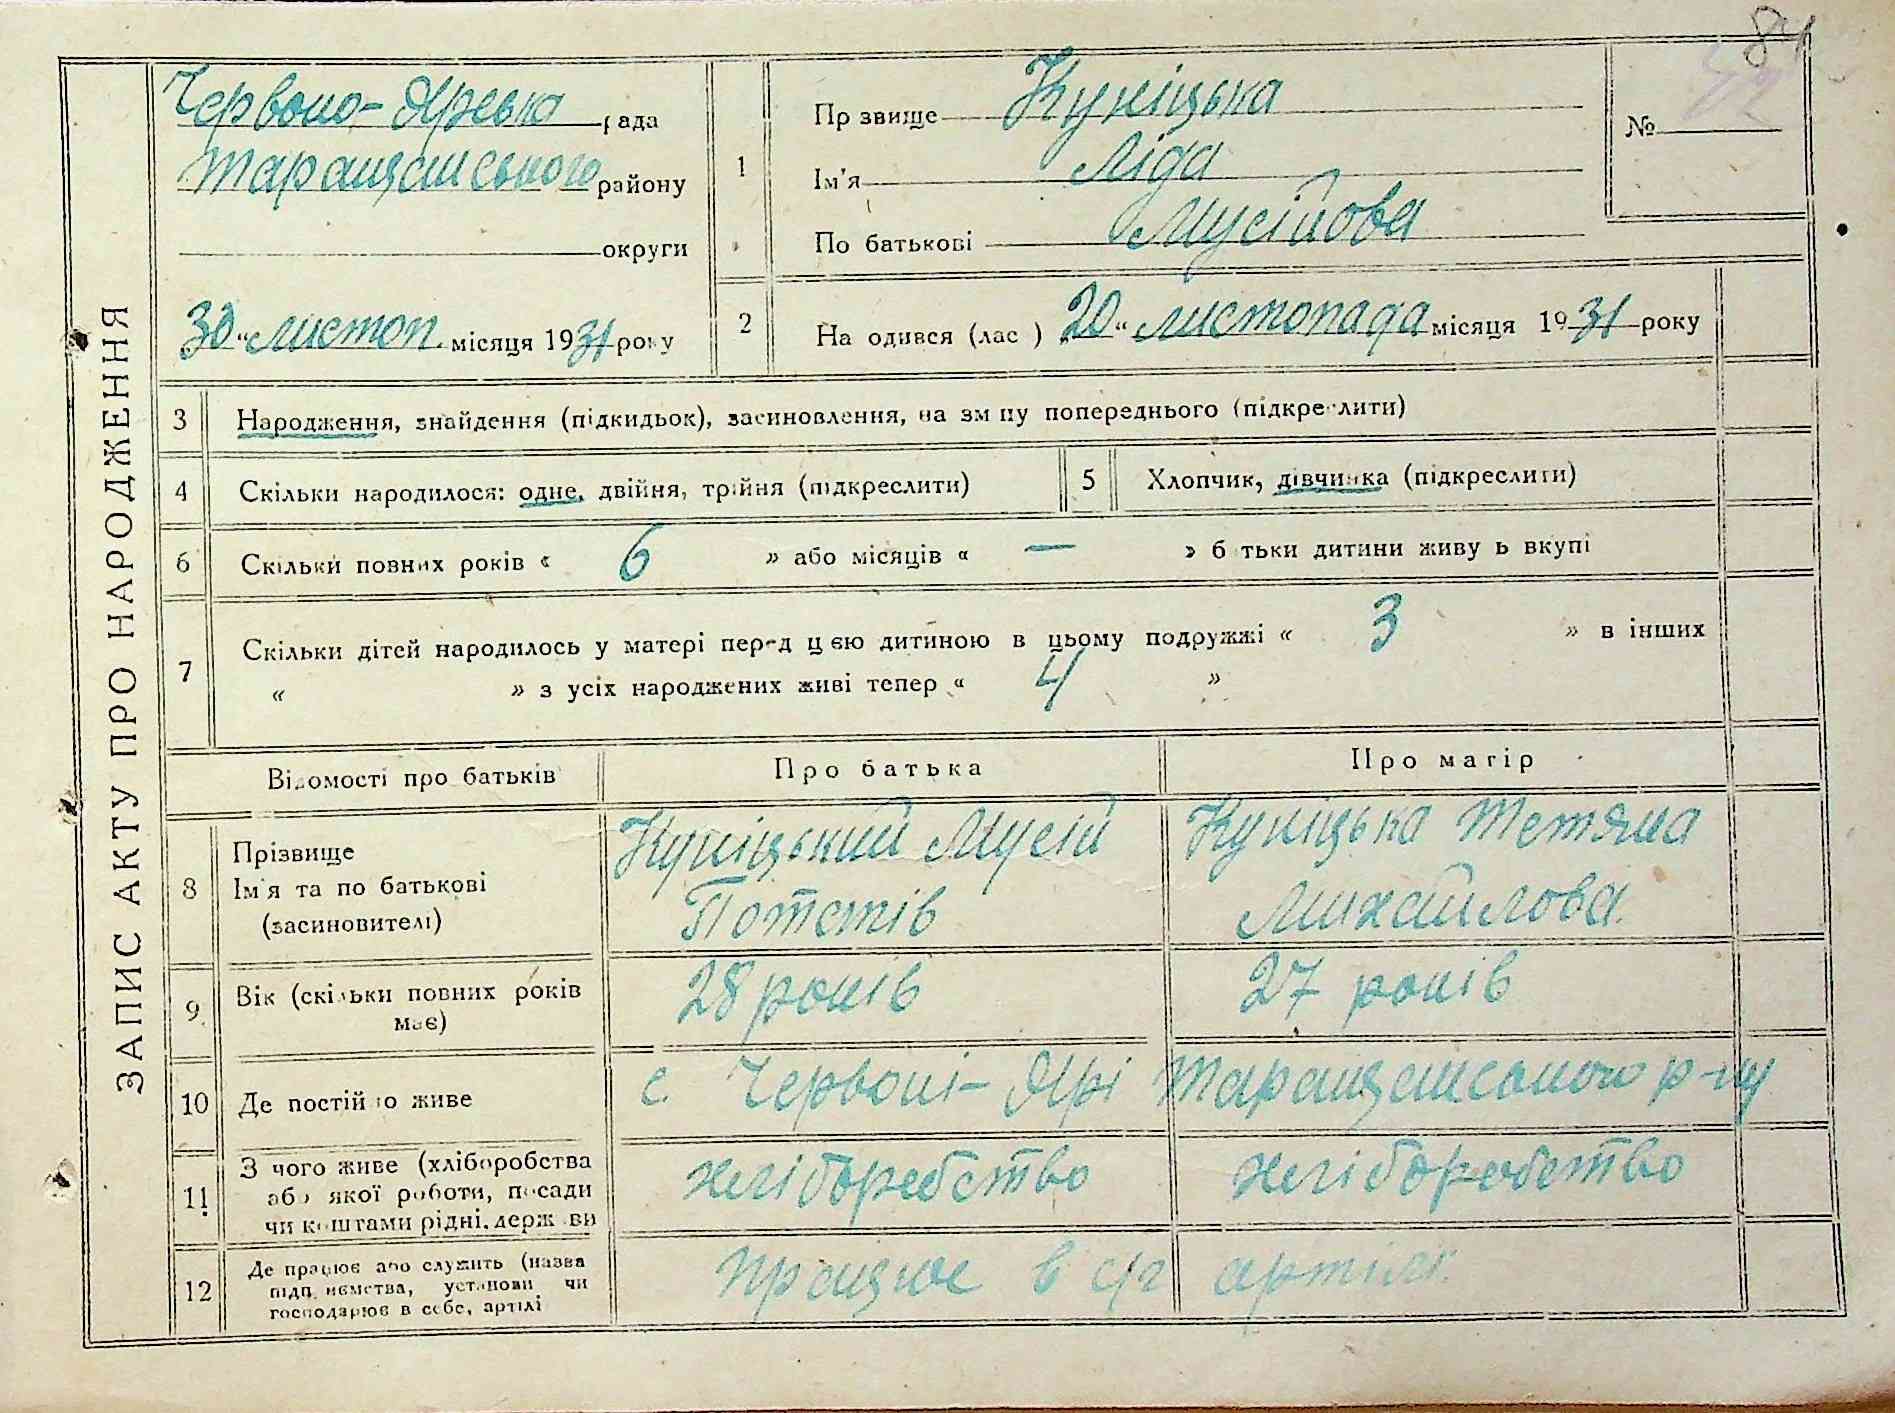 84
ЗАПИС АКТУ ПРО НАРОДЖЕННЯ
Червоно-Ярська рада
Таращанського району
округи
30 " листоп. місяця 1931 року
1
Прзвище Куніцька
Ім'я Ліда
По батькові Мусійова
№
2
На одився (лас ) 20 " листопада місяця 1931 року
3 Народження, знайдення (підкидьок), засиновлення, на зм ну попереднього (підкреслити)
4 Скільки народилося: одне, двійня, трійня (підкреслити)
5 Хлопчик, дівчинка (підкреслити)
6 Скільки повних років « 6 » або місяців « — » б тьки дитини живу ь вкупі
7 Скільки дітей народилось у матері перед цією дитиною в цьому подружжі « 3 » в інших
« » з усіх народжених живі тепер « 4 »
Відомості про батьків
Про батька
Про матір
8
Прізвище
Ім'я та по батькові
(засиновителі)
Куніцький Мусій
Потапів
Куніцька Тетяна
Михайлова
9 Вік (скільки повних років
має)
28 років
27 років
10 Де постійно живе
с. Червоні-Ярі Таращанського р-ну
11 З чого живе (хліборобства
або якої роботи, посади
чи коштами рідні, держ ви
хліборобство
хліборобство
12 Де працює або служить (назва
підп. иємства, установи чи
господарює в себе, артілі
працює в с/г артілі